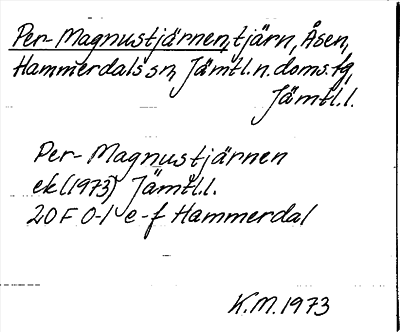 Per-Magnustjärnen, tjärn, Åsen,
Hammerdals sn, Jämtl. n. doms. tg,
Jämtl. l.
Per-Magnustjärnen
ek (1973) Jämtl. l.
20F 0-1 e-f Hammerdal
K.M. 1973